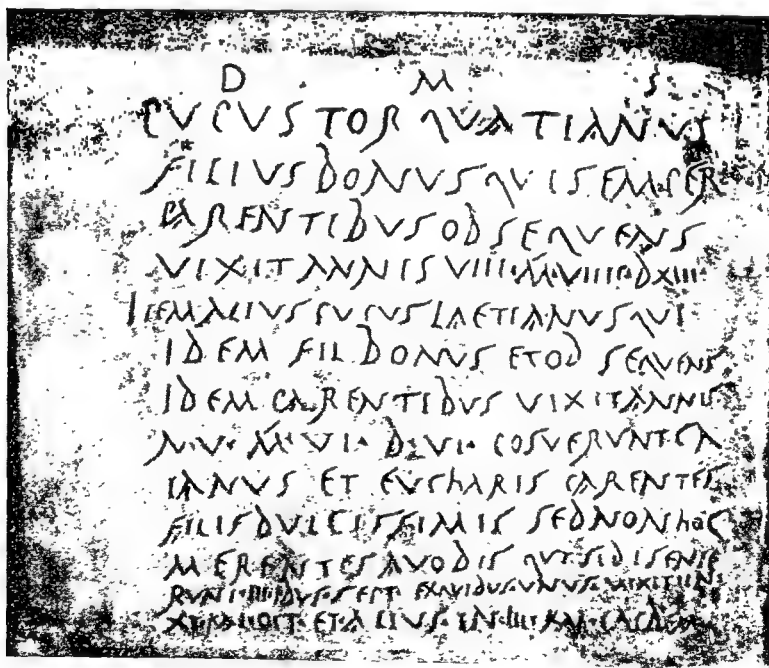 D M S
PVPVS TORQVATIANVS
FILIVS BONVS QVI SEMPER
PARENTIBVS OBSEQVENS
VIXIT ANNIS VIII·M·VIIII·D XIII·
ITEM ALIVS PVPVS LAETIANVS QVI·
IDEM FIL BONVS ET OBSEQVENS
IDEM PARENTIBVS VIXIT ANNIS
N·V·M·VI·D·VI·POSVERVNT·GA
IANVS ET EVCHARIS PARENTES
FILIS DVLCISSIMIS SED NON HOC
MERENTES A VOBIS
IDVS·SEPT·EX QVIBVS·VNVS·VIXIT IN·
OCT·ET·ALIVS·IN·III·